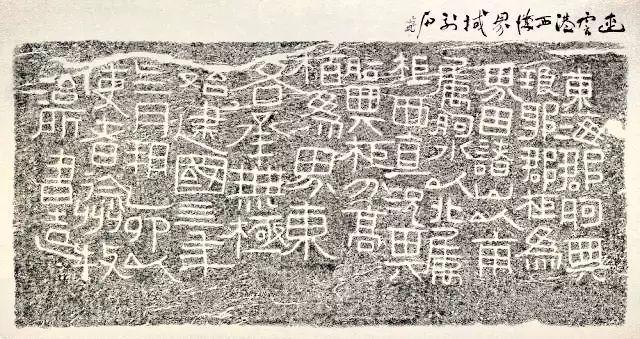 連雲港西連界域刻石
東海郡朐與
琅邪郡柜為
界因諸山以南
屬朐水以北屬
柜西直況其
朐與柜分高
陌為界東
各承無極
始建國四年
四月朔乙卯以
使者徐州牧
治所書造